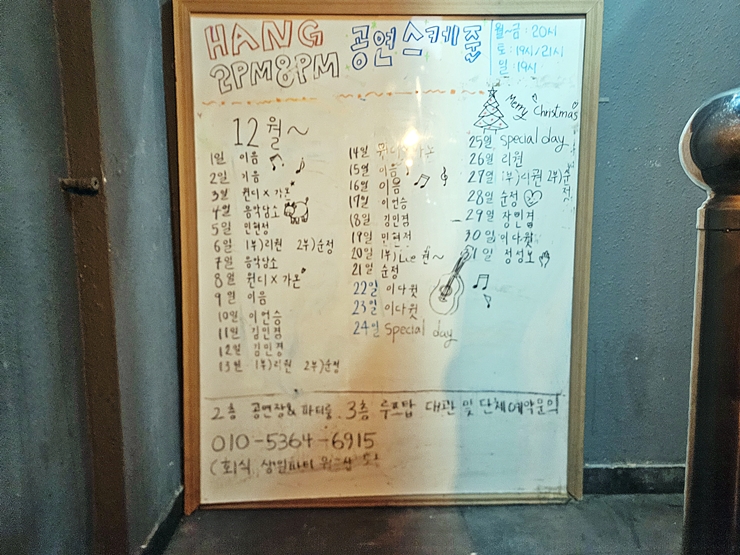 HANG 공연스케줄
2PM8PM
월~금 : 20시
토 : 19시/21시
일 : 19시
12월~
1일 이음
2일 이음
3일 윈디 X 가온
4일 음악담소
5일 민현정
6일 1부)리원 2부)순정
7일 음악담소
8일 윈디 X 가온
9일 이음
10일 이언승
11일 김민경
12일 김민경
13일 1부)리원 2부)순정
14일
15일 이음
16일 이음
17일 이언승
18일 김민경
19일 민현정
20일 1부)
21일 순정
22일 이다윗
23일 이다윗
24일 special day
Merry Christmas
25일 special day
26일 리원
27일 1부)리원 2부)순정
28일 순정
29일 장민경
30일 이다윗
1일 정성보
2층 공연장&파티룸. 3층 루프탑 대관 및 단체예약문의
010-5364-6915
(회식 생일파티